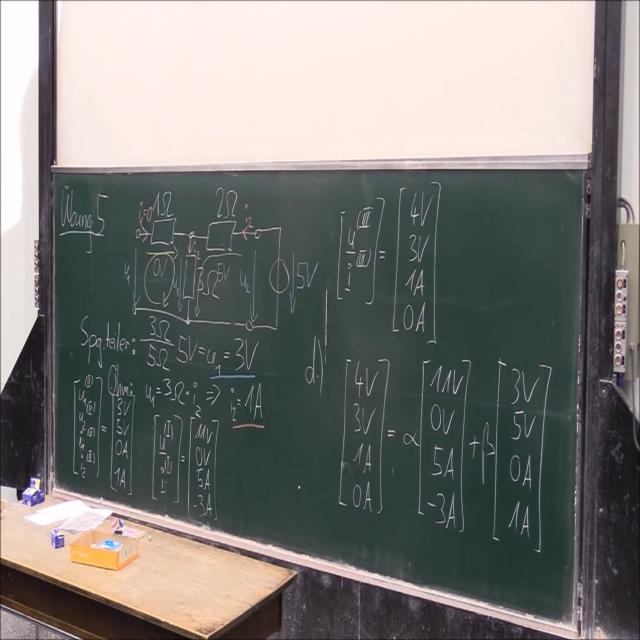 Übung 5
i₁=0 1Ω 2Ω i₂
u₁ 0V 3Ω 5V u₂ 5V
Spgteiler: 3Ω/5Ω 5V = u₁ = 3V
Ohm: u₁ = 3Ω · i₂ ⇒ i₂ = 1A
[u₁⁽ᴵ⁾ u₂⁽ᴵ⁾ i₁⁽ᴵ⁾ i₂⁽ᴵ⁾] = [3V 5V 0A 1A]
[u⁽ᴵᴵ⁾ i⁽ᴵᴵ⁾] = [11V 0V 5A -3A]
[u⁽ᴵᴵᴵ⁾ i⁽ᴵᴵᴵ⁾] = [4V 3V 1A 0A]
d)
[4V 3V 1A 0A] = α [11V 0V 5A -3A] + β [3V 5V 0A 1A]